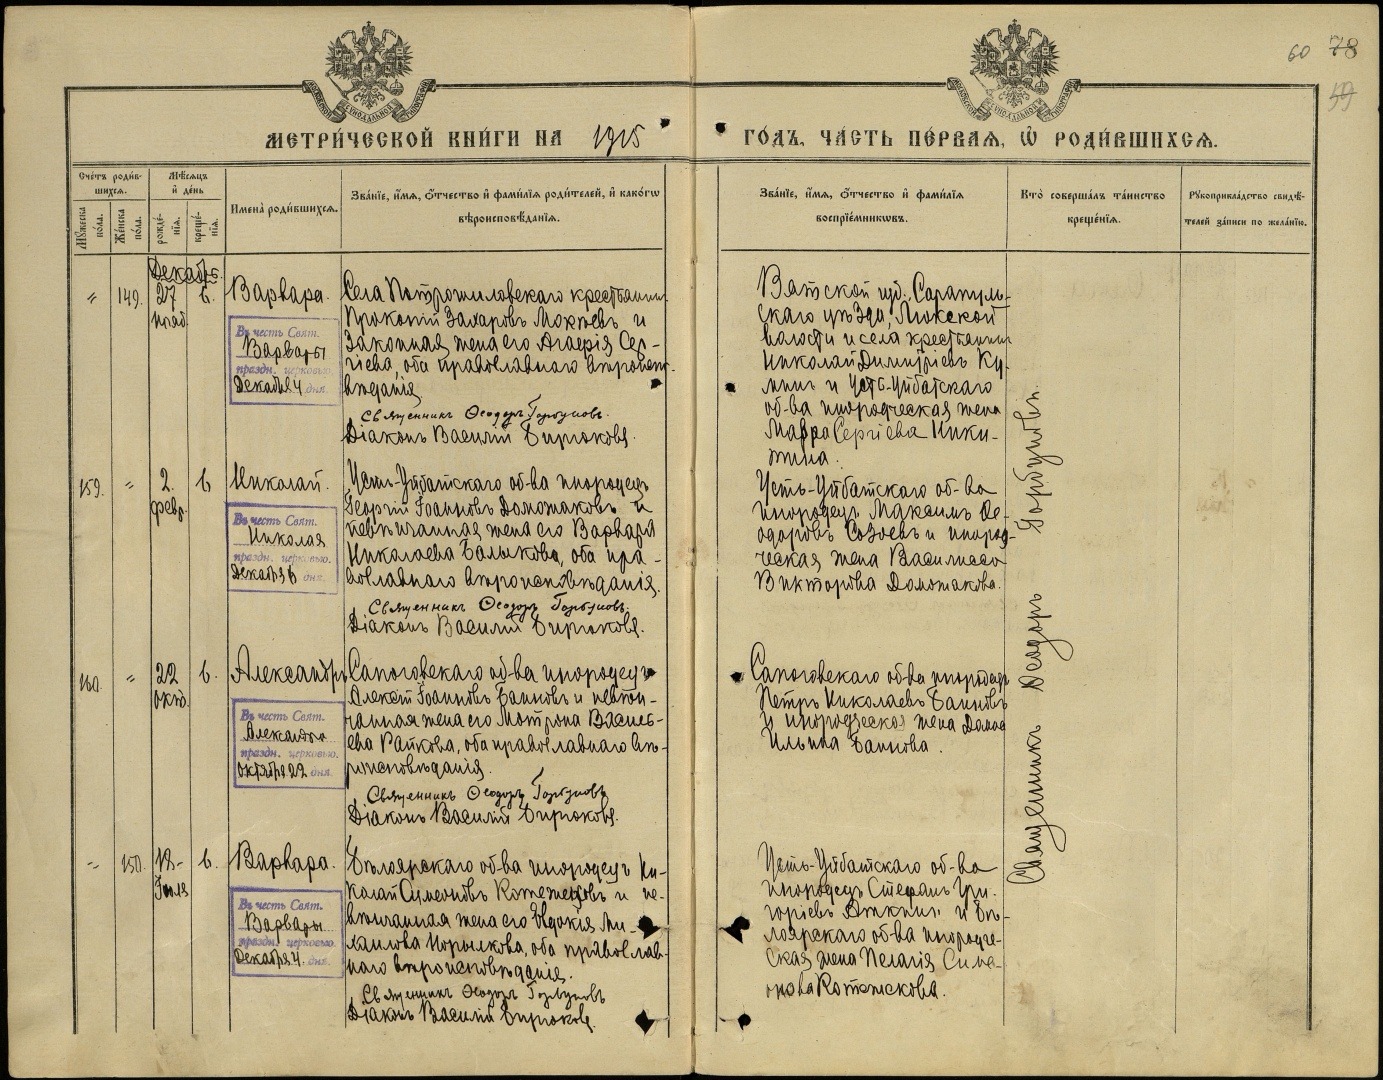 60 78
59
МЕТРИ́ЧЕСКОЙ КНИ́ГИ НА 1915
ГО́ДЪ, ЧА́СТЬ ПЕ́РВАЯ, Ѡ҆ РОДИ́ВШИХСЯ.
Сче́тъ роди́в-
шихся.
Мꙋ́жеска по́ла.
Же́нска по́ла.
Мѣ́сяцъ
и҆ де́нь
рожде́-
нїя.
креще́-
нїя.
И҆мена̀ роди́вшихся.
Зва́нїе, и҆́мя, ѻ҆́тчество и҆ фами́лїя роди́телей, и҆ како́гѡ
вѣроисповѣ́данїя.
Зва́нїе, и҆́мя, ѻ҆́тчество и҆ фами́лїя
воспрїе́мникѡвъ.
Кто̀ соверша́лъ та́инство
креще́нїя.
Рꙋкоприкла́дство свидѣ́-
телей за́писи по жела́нїю.
Декабрь.
" 149. 27 6. Варвара.
нояб.
Въ честь Свят.
Варвары
праздн. церковью.
Декабря 4 дня.
Села крестьянин
Прокопій Захаровъ и
законная жена его Агаѳія Сер-
гіева, оба православнаго вѣроиспо-
вѣданія
Священникъ Ѳеодоръ Горбуновъ.
Діаконъ Василій Бирюковъ.
Вятской губ. Сарапуль-
скаго уѣзда,
волости и села крестьянин
Николай Димитріевъ Ку-
и Усть-Уйбатскаго
об-ва инородческая жена
Мавра Сергіева Ники-
тина.
159. " 2. 6 Николай.
февр.
Въ честь Свят.
Николая
праздн. церковью.
Декабря 6 дня.
Усть-Уйбатскаго об-ва инородецъ
Георгій Іоанновъ Доможаковъ и
невѣнчанная жена его Варвара
Николаева Балыкова, оба пра-
вославнаго вѣроисповѣданія.
Священникъ Ѳеодоръ Горбуновъ.
Діаконъ Василій Бирюковъ.
Усть-Уйбатскаго об-ва
инородецъ Максимъ Ѳе-
одоровъ и инород-
ческая жена Василисса
Викторова Доможакова.
160. " 22 6. Александръ
окт.
Въ честь Свят.
Александра
праздн. церковью.
октября 22 дня.
Сапоговскаго об-ва инородецъ
Алексѣй Іоанновъ Баиновъ и невѣн-
чанная жена его Матрона Василь-
ева Райкова, оба православнаго вѣ-
роисповѣданія.
Священникъ Ѳеодоръ Горбуновъ
Діаконъ Василій Бирюковъ.
Сапоговскаго об-ва инородецъ
Петръ Николаевъ Баиновъ
и инородческая жена Домна
Ильина Баинова.
" 150. 18- 6. Варвара.
Іюля
Въ честь Свят.
Варвары
праздн. церковью.
Декабря 4. дня.
Бѣлоярскаго об-ва инородецъ Ни-
колай Симеоновъ и не-
вѣнчанная жена его Евдокія Ми-
хаилова Норылкова, оба православ-
наго вѣроисповѣданія.
Священникъ Ѳеодоръ Горбуновъ
Діаконъ Василій Бирюковъ.
Усть-Уйбатскаго об-ва
инородецъ Стефанъ Гри-
горіевъ и Бѣ-
лоярскаго об-ва инородче-
ская жена Пелагія Симе-
онова
Священникъ Ѳеодоръ Горбуновъ